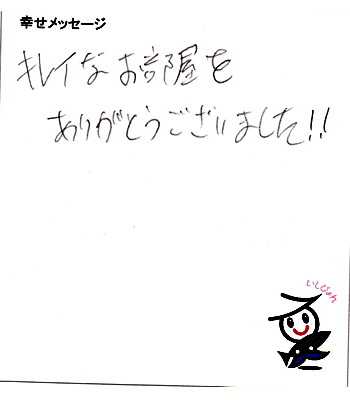 幸せメッセージ
キレイなお部屋を
ありがとうございました!!
いしぴょん